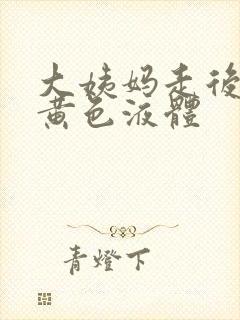 大姨妈走後
黄色液體
青燈下